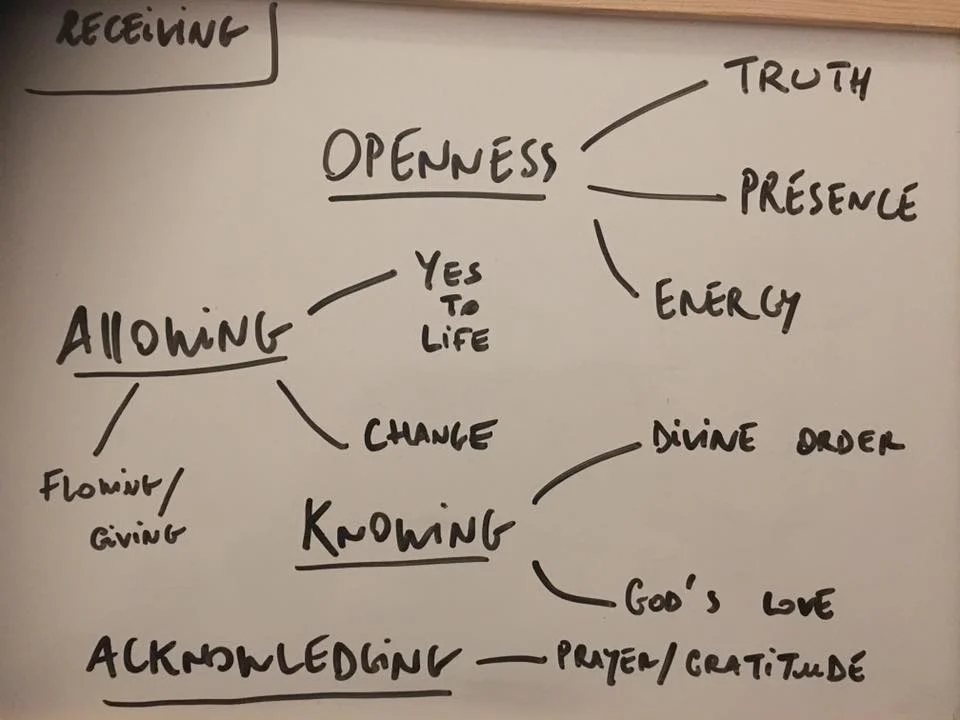 RECEIVING
OPENNESS
TRUTH
PRESENCE
ENERGY
AllOWING
YES
TO
LIFE
CHANGE
FLOWING/
GIVING
KNOWING
DIVINE ORDER
GOD'S LOVE
ACKNOWLEDGING
PRAYER/GRATITUDE